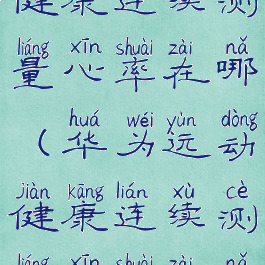 健康连续测
liáng xīn shuài zài nǎ
量心率在哪
huá wéi yùn dòng
（华为远动
jiàn kāng lián xù cè
健康连续测
liáng xīn shuài zài nǎ